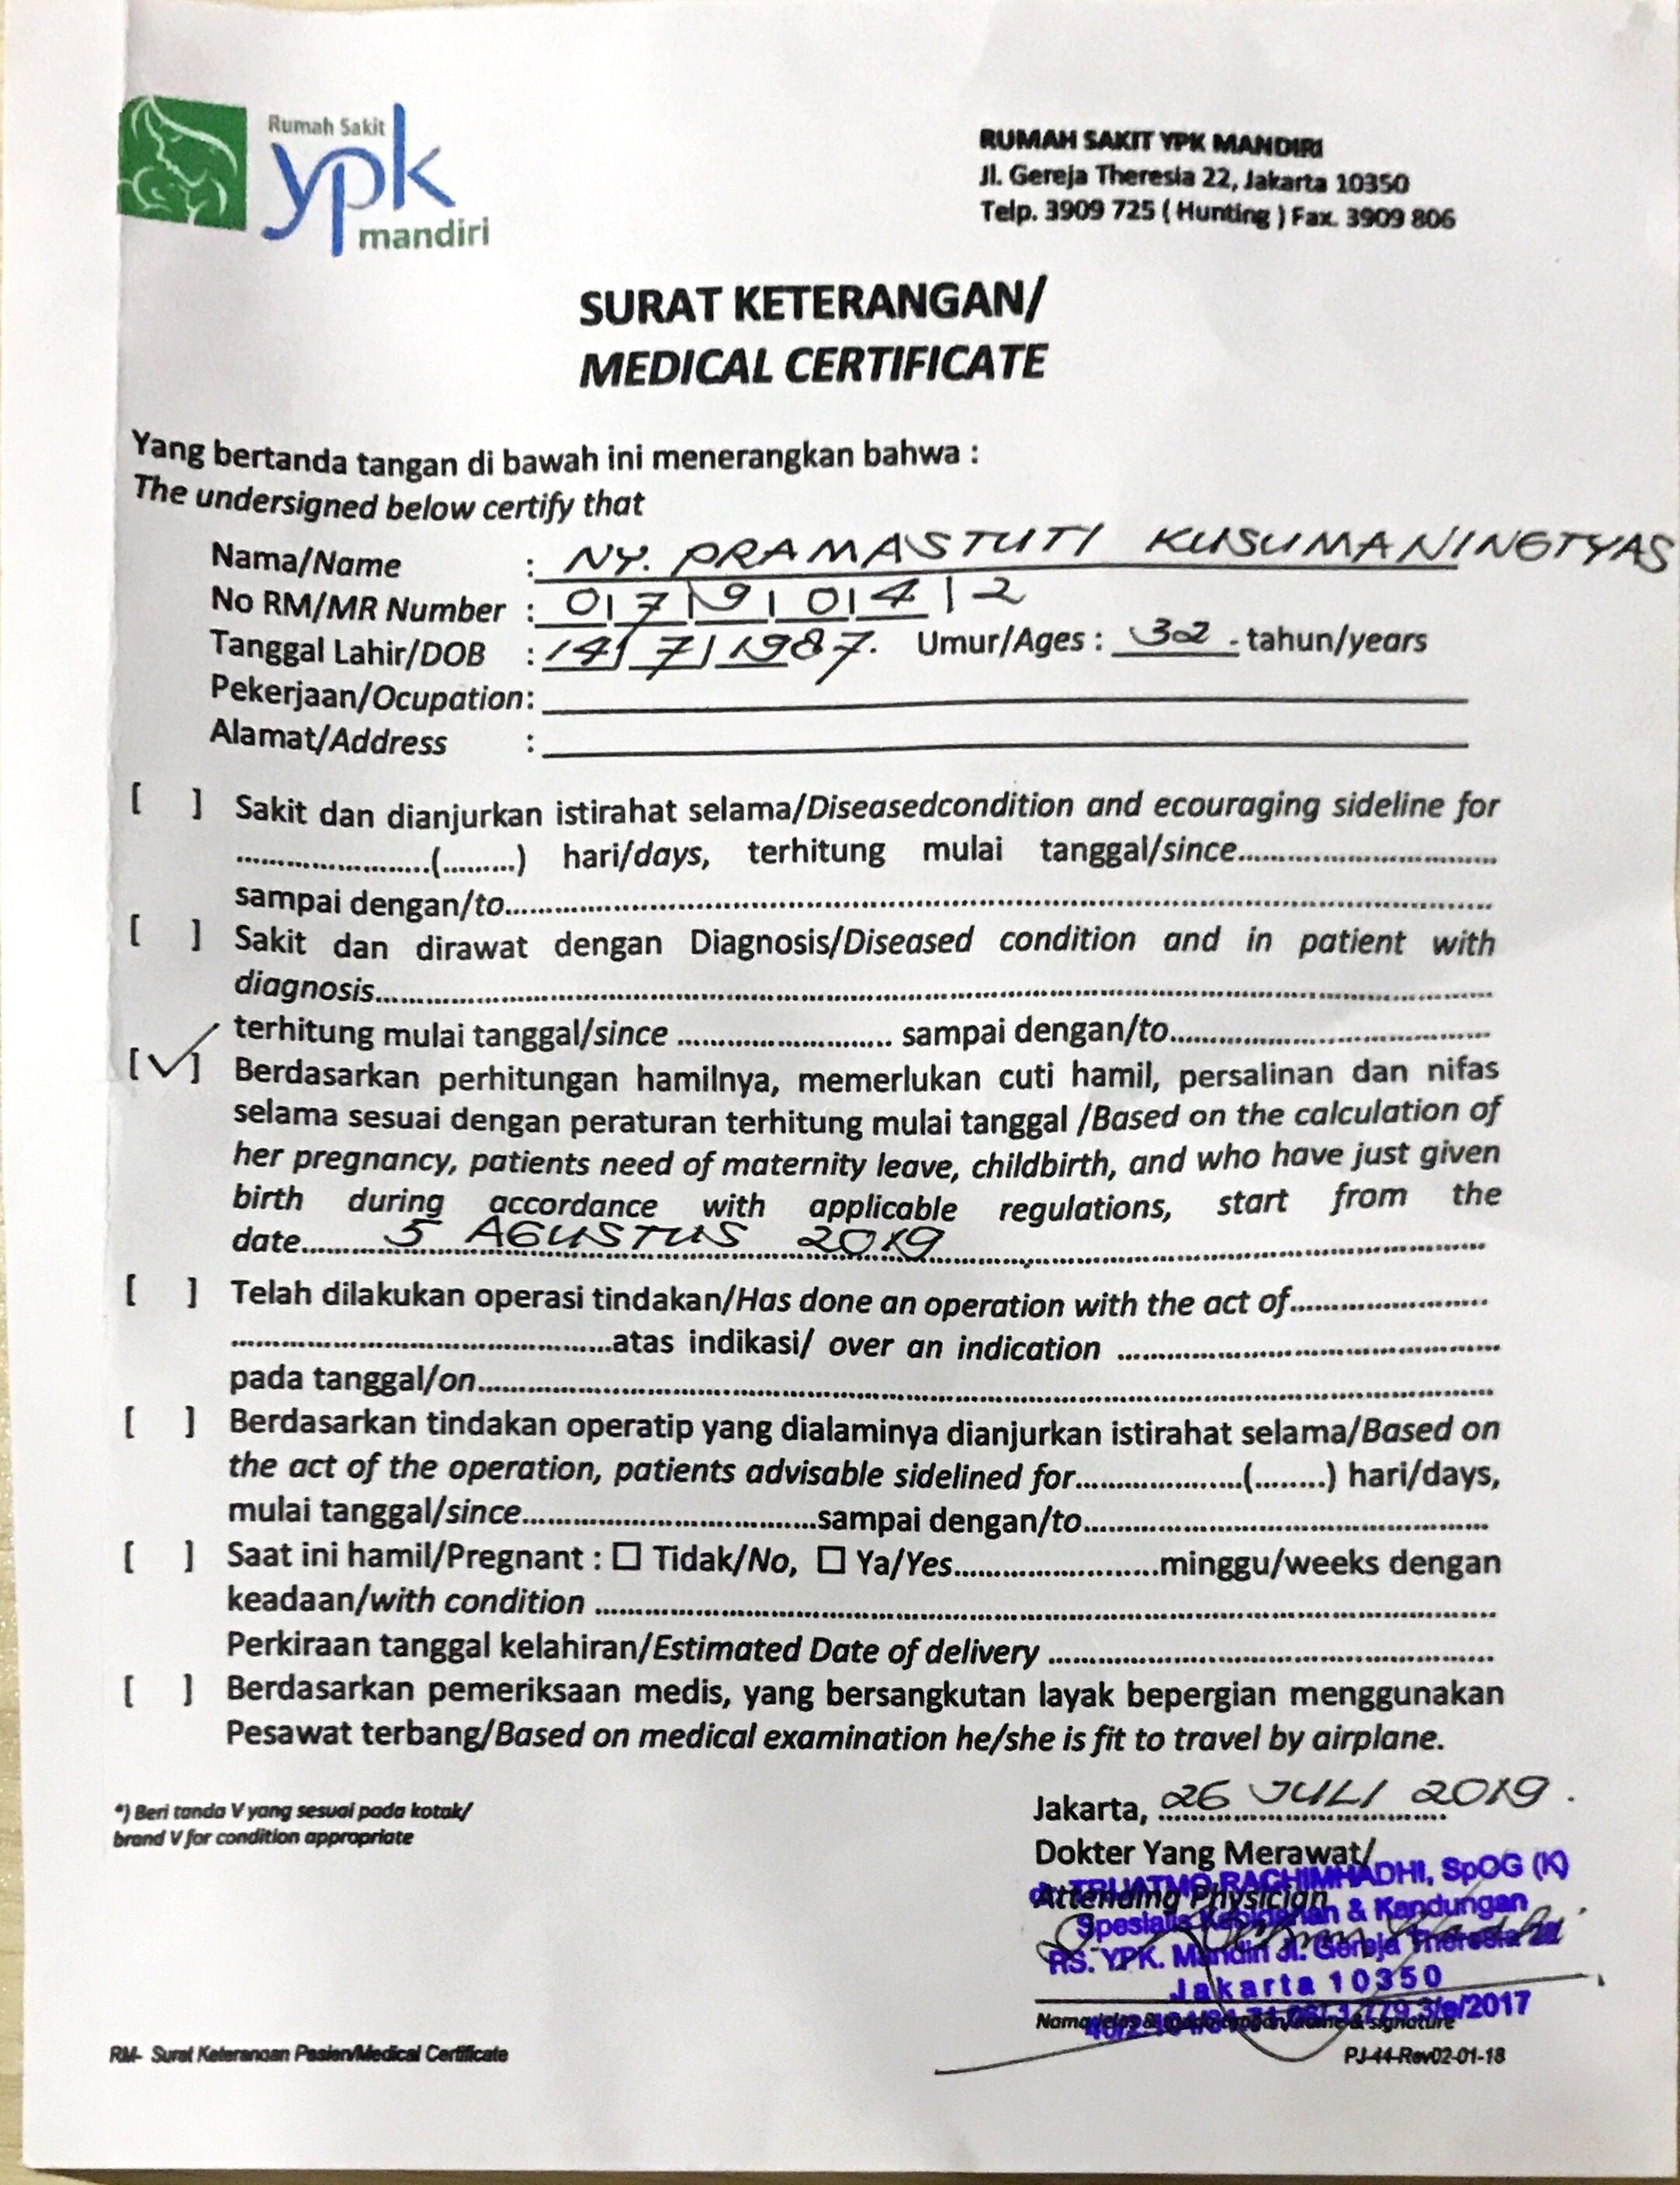 Rumah Sakit
ypk
mandiri
RUMAH SAKIT YPK MANDIRI
Jl. Gereja Theresia 22, Jakarta 10350
Telp. 3909 725 ( Hunting ) Fax. 3909 806
SURAT KETERANGAN/
MEDICAL CERTIFICATE
Yang bertanda tangan di bawah ini menerangkan bahwa :
The undersigned below certify that
Nama/Name : NY. PRAMASTUTI KUSUMANINGTYAS
No RM/MR Number : 0|7|9|0|4|2
Tanggal Lahir/DOB : 14/7/1987. Umur/Ages : 32 - tahun/years
Pekerjaan/Ocupation:
Alamat/Address :
[ ] Sakit dan dianjurkan istirahat selama/Diseasedcondition and ecouraging sideline for
.....................(.........) hari/days, terhitung mulai tanggal/since............................
sampai dengan/to..............................................................................
[ ] Sakit dan dirawat dengan Diagnosis/Diseased condition and in patient with
diagnosis..............................................................................
terhitung mulai tanggal/since ........................ sampai dengan/to..............................
[✓] Berdasarkan perhitungan hamilnya, memerlukan cuti hamil, persalinan dan nifas
selama sesuai dengan peraturan terhitung mulai tanggal /Based on the calculation of
her pregnancy, patients need of maternity leave, childbirth, and who have just given
birth during accordance with applicable regulations, start from the
date.........5 AGUSTUS 2019..............................
[ ] Telah dilakukan operasi tindakan/Has done an operation with the act of......................
..........................................atas indikasi/ over an indication ..........................................
pada tanggal/on..............................................................................
[ ] Berdasarkan tindakan operatip yang dialaminya dianjurkan istirahat selama/Based on
the act of the operation, patients advisable sidelined for...................(........) hari/days,
mulai tanggal/since................................sampai dengan/to............................................
[ ] Saat ini hamil/Pregnant : ☐ Tidak/No, ☐ Ya/Yes.......................minggu/weeks dengan
keadaan/with condition ..............................................................................
Perkiraan tanggal kelahiran/Estimated Date of delivery ................................................
[ ] Berdasarkan pemeriksaan medis, yang bersangkutan layak bepergian menggunakan
Pesawat terbang/Based on medical examination he/she is fit to travel by airplane.
*) Beri tanda V yang sesuai pada kotak/
brand V for condition appropriate
Jakarta, 26 JULI 2019.
Dokter Yang Merawat/
Attending Physician
RACHIMHADHI, SpOG (K)
Spesialis Kebidanan & Kandungan
RS. YPK. Mandiri Jl. Gereja Theresia 22
Jakarta 10350
signature
RM- Surat Keterangan Pasien/Medical Certificate
PJ-44-Rev02-01-18